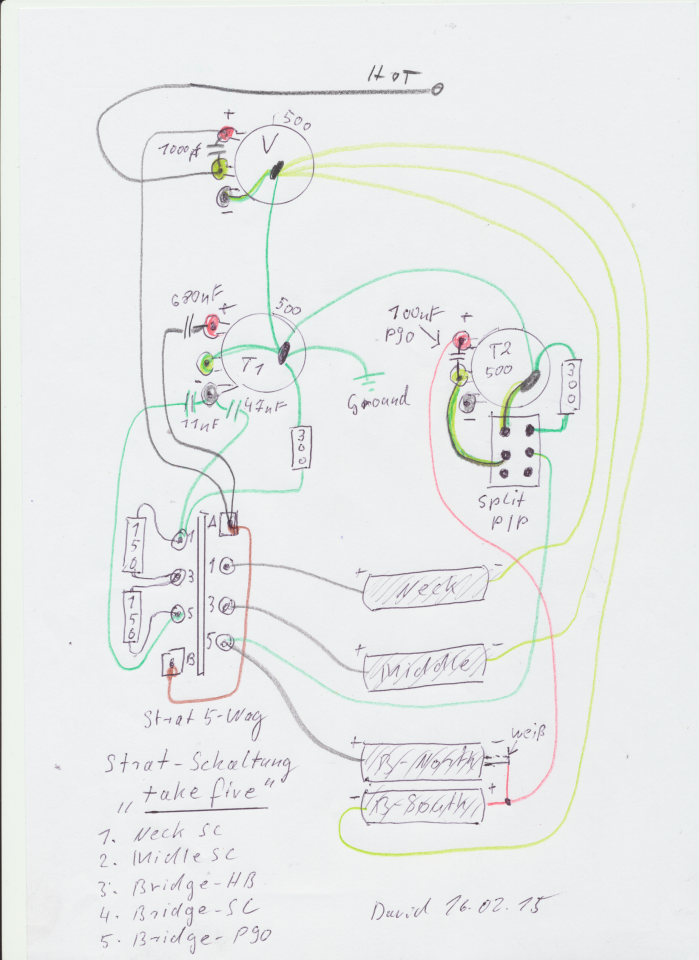 HOT
+
500
1000pf
V
-
680nF
+
500
T1
-
11nF
47nF
300
Ground
100nF
P90
+
T2
500
-
300
Split
P/P
A
1
3
5
B
1
3
5
150
150
Strat 5-Way
+ Neck -
+ Middle -
+ B-North -
weiß
- B-South +
Strat-Schaltung
„take five“
1. Neck SC
2. Midle SC
3. Bridge-HB
4. Bridge-SC
5. Bridge-P90
David 16.02.15